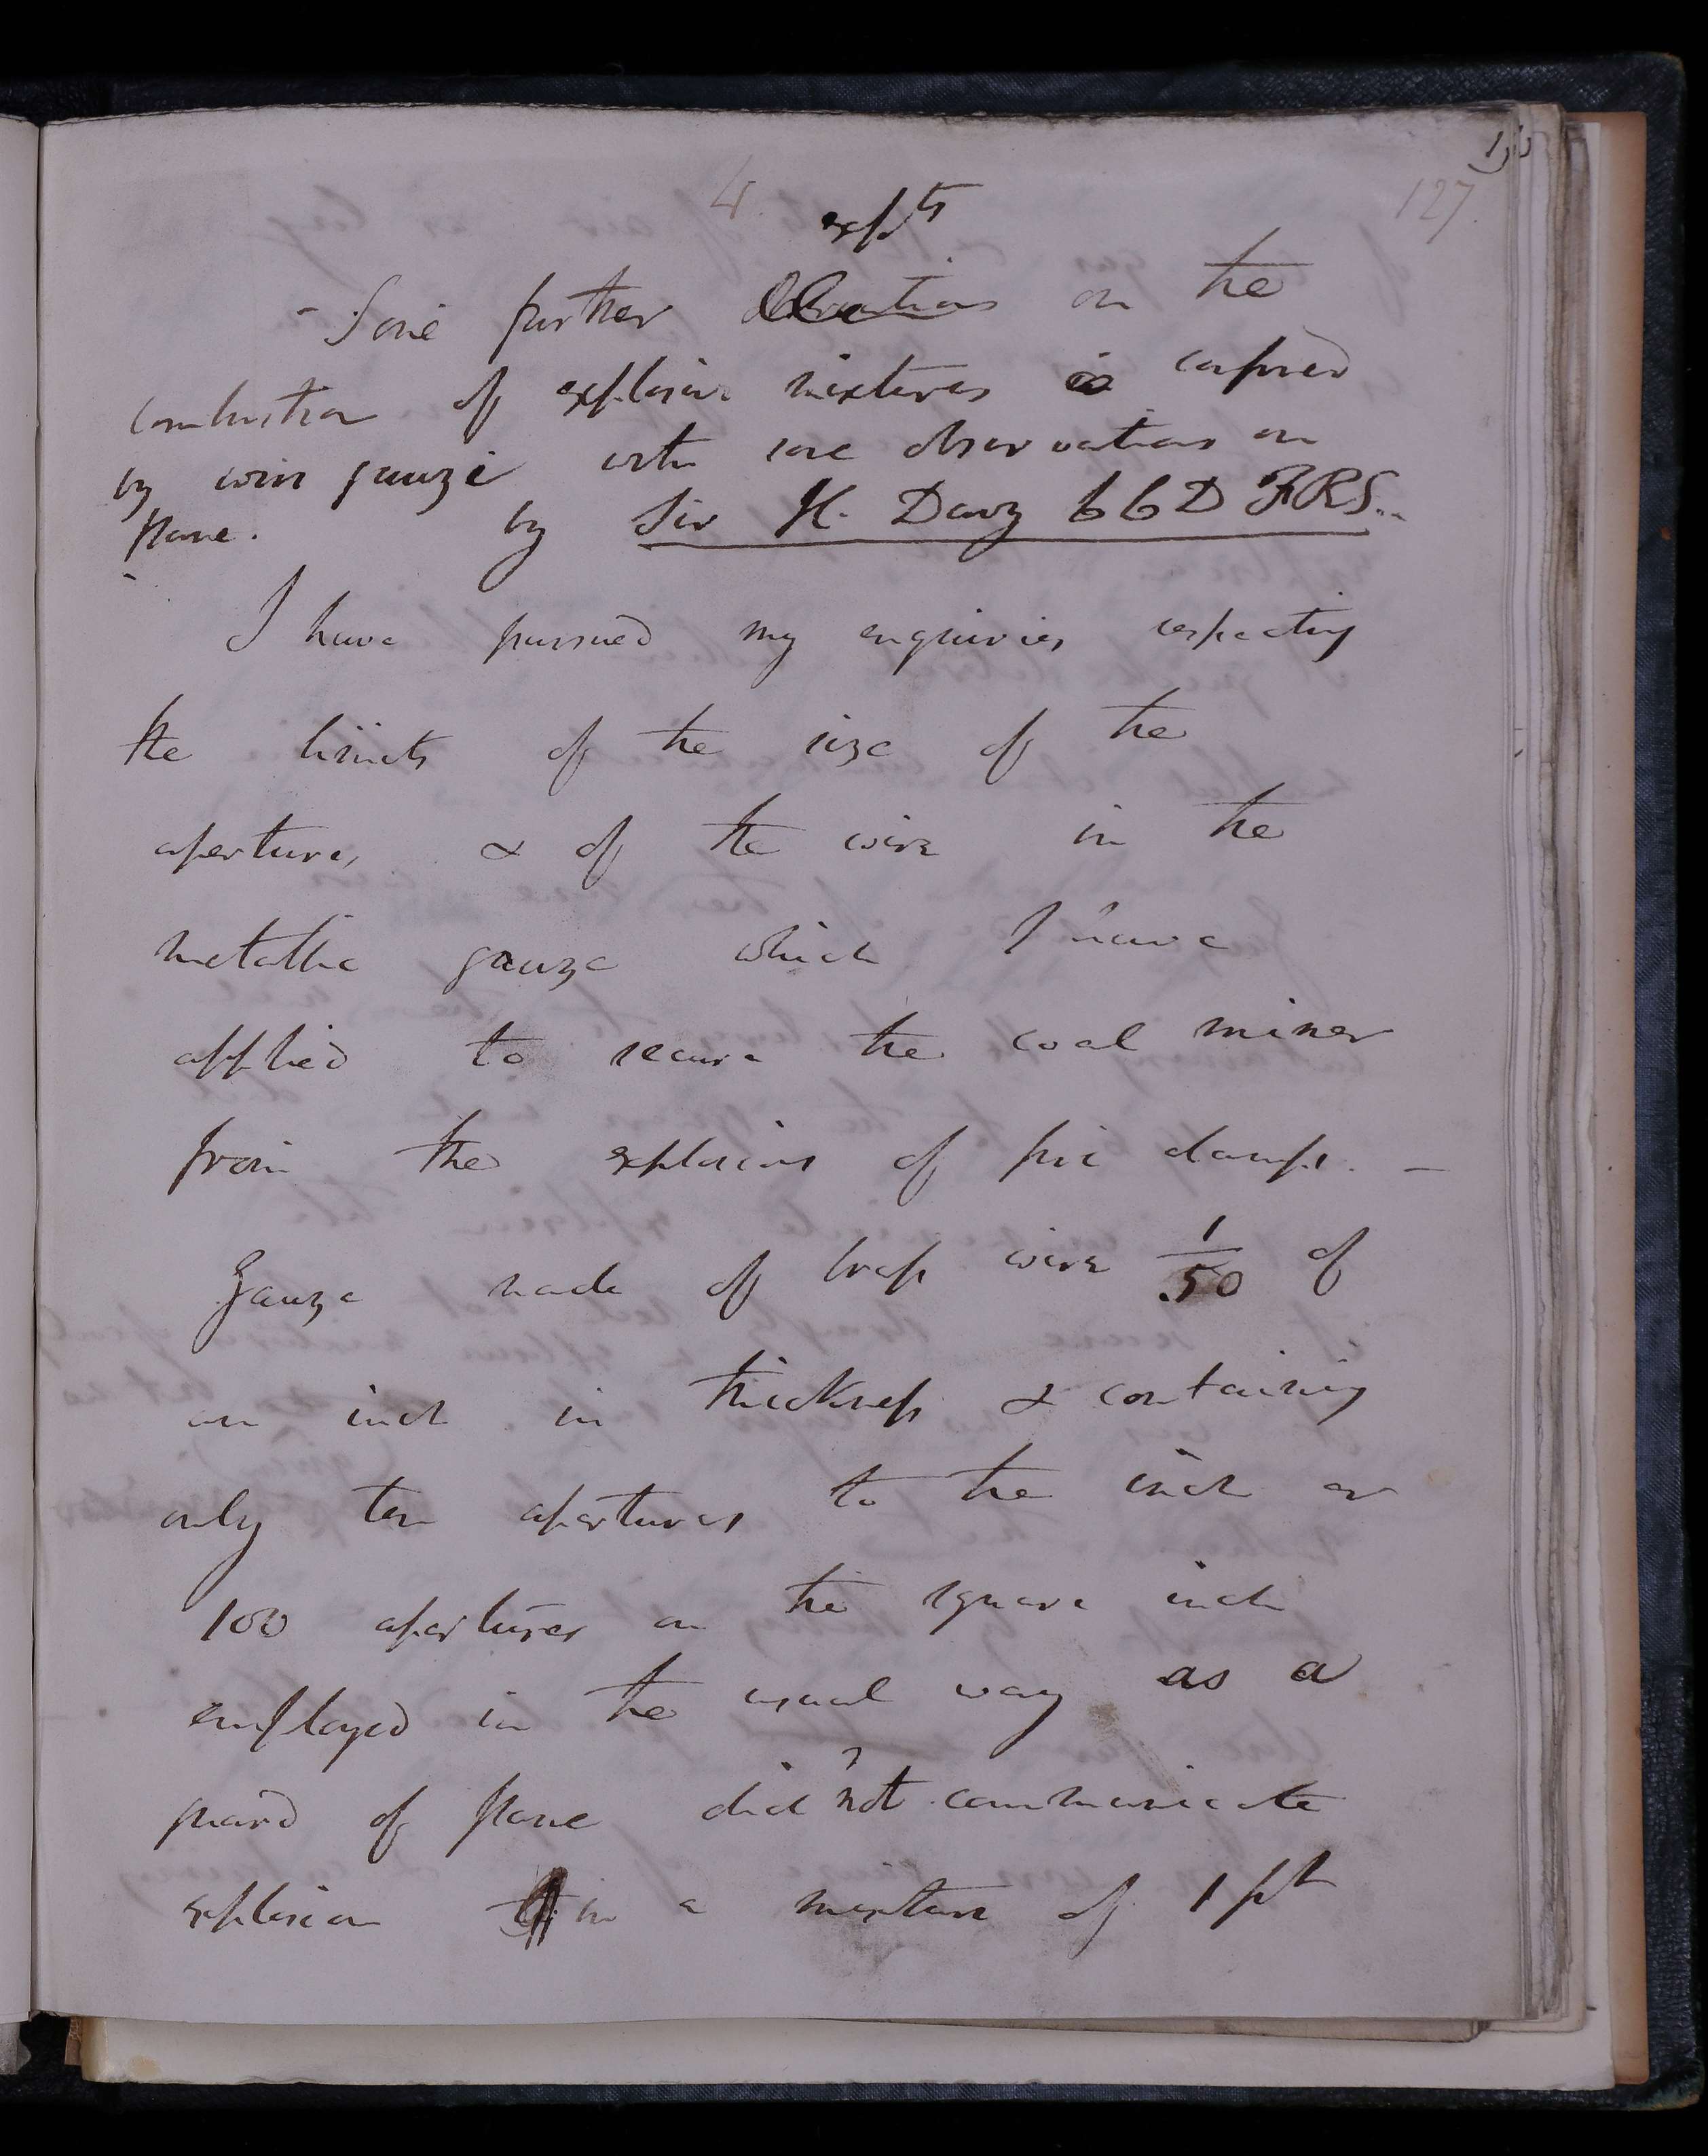 4.
127.
expts
- Some further observations on the
combustion of explosive mixtures confined
by wire gauze with some observations on
flame. by Sir H. Davy LLD FRS..
I have pursued my enquiries respecting
the limits of the size of the
apertures & of the wire in the
metallic gauze which I have
applied to secure the coal miner
from the explosions of fire damp. —
Gauze made of brass wire 1/50 of
an inch in thickness & containing
only ten apertures to the inch or
100 apertures on the square inch
employed in the usual way as a
guard of flame did not communicate
explosion in a mixture of 1 pt